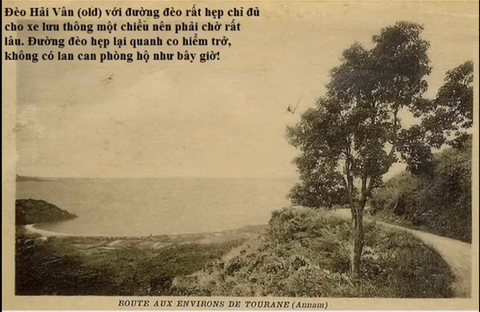 Đèo Hải Vân (old) với đường đèo rất hẹp chỉ đủ
cho xe lưu thông một chiều nên phải chờ rất
lâu. Đường đèo hẹp lại quanh co hiểm trở,
không có lan can phòng hộ như bây giờ!
ROUTE AUX ENVIRONS DE TOURANE (Annam)